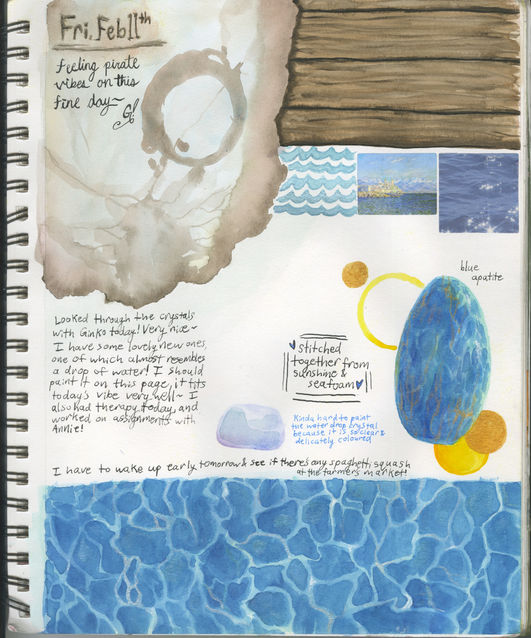 Fri. Feb 11th
feeling pirate
vibes on this
fine day~
G!
blue
apatite
Looked through the crystals
with Ginko today! Very nice~
I have some lovely new ones,
one of which almost resembles
a drop of water! I should
paint it on this page, it fits
today's vibe very well~ I
also had therapy today, and
worked on assignments with
Annie!
♥stitched
together from
sunshine &
seafoam♥
Kinda hard to paint
the water drop crystal
because it is so clear &
delicately coloured
I have to wake up early tomorrow & see if there's any spaghetti squash
at the farmers market!